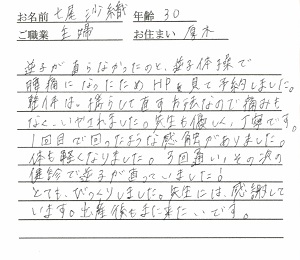 お名前 七尾 沙織 年齢 30
ご職業 主婦 お住まい 厚木
逆子が直らなかったのと、逆子体操で
腰痛になったためHPを見て予約しました。
整体は、揺らして直す方法なので痛みも
なく、いやされました。先生も優しく、丁寧です。
1回目で回ったような感触がありました。
体も軽くなりました。3回通い、その次の
健診で逆子が直っていました!
とても、びっくりしました。先生には、感謝して
います。出産後もまた来たいです。